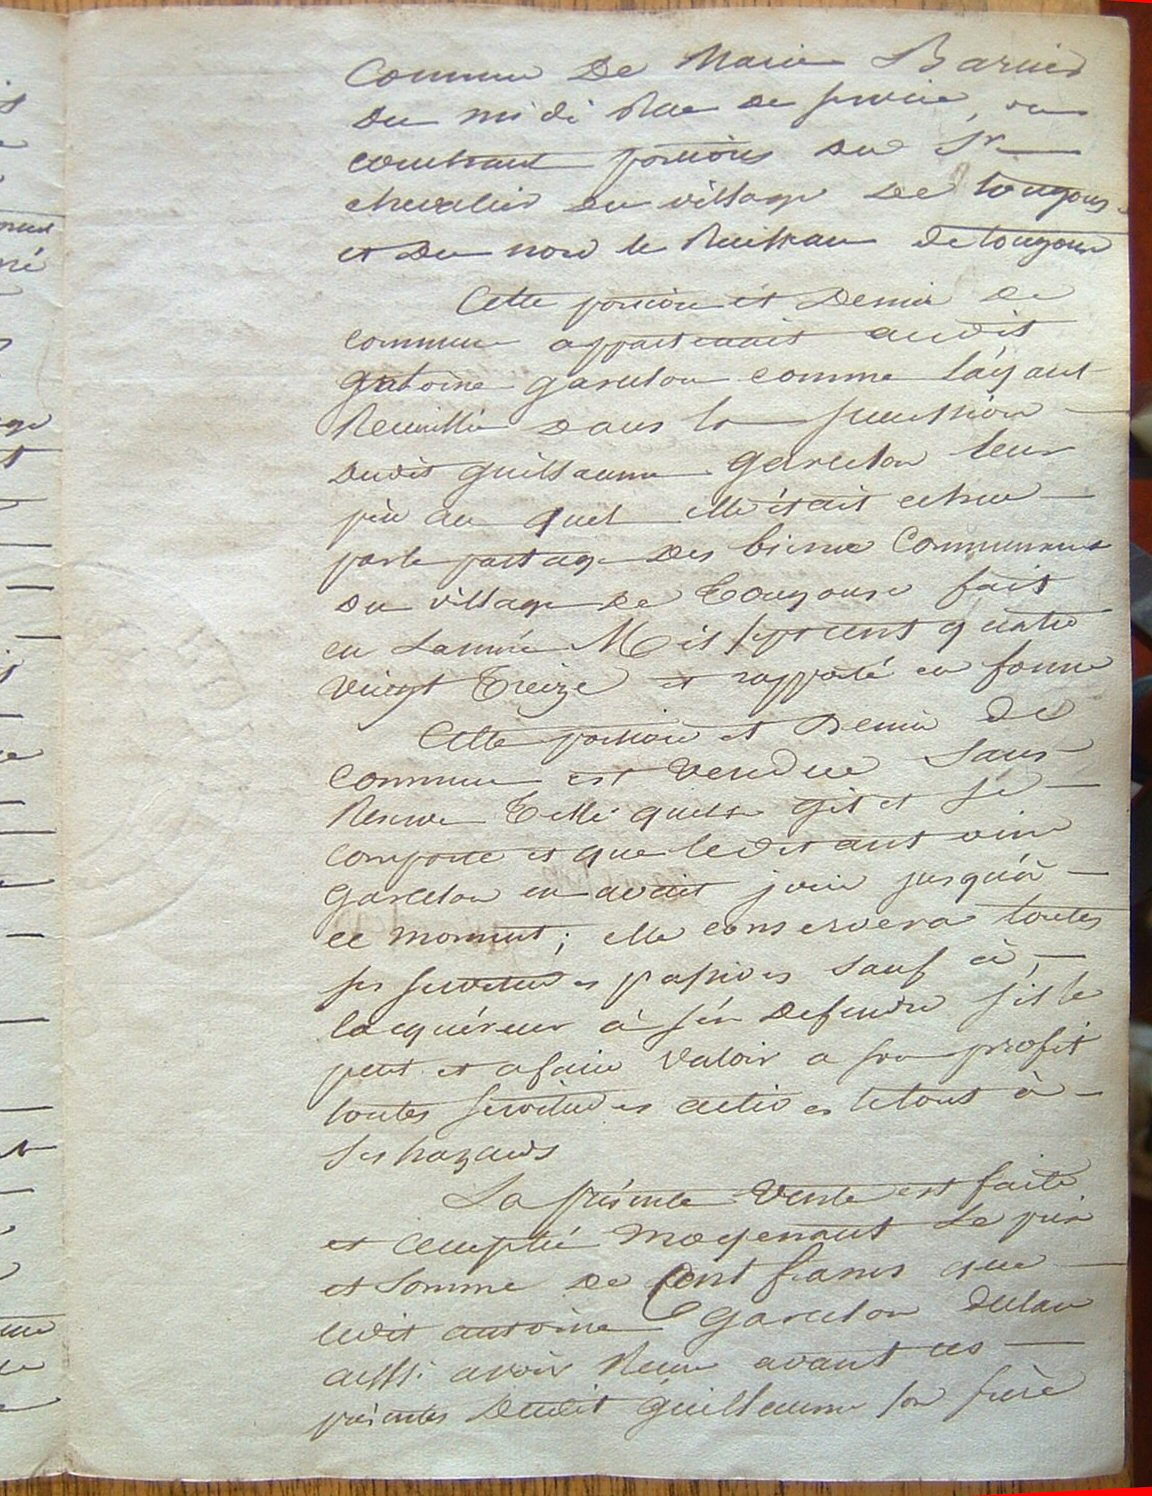 Commun De Marie Barrier
Du midi Rue De service, ou
couchant portions du Sr
chevalier du village De tougouse
et Du nord le Ruisseau de tougouse
Cette portion et Demie De
commun appartenait audit
antoine garcelon comme l'ayant
Recueillie Dans la succession
Dudit guillaume garcelon leur
père au quel elle était echue
par le partage Des biens Communaux
Du village De Tougouse fait
en L'année Mil sept cent quatre
vingt Treize et rapporté en forme
Cette portion et Demie De
commun est vendue Sans
Reserve Telle quelle git et se
comporte et que ledit antoine
garcelon en avait joui jusqu'à
ce moment; elle conservera toutes
ses servitudes passives sauf à
lacquéreur à s'en Defendre s'il le
peut et a faire valoir a son profit
toutes servitudes actives le tout à
Ses hazards
La présente vente est faite
et acceptée moyenant Le prix
et Somme De Cent francs que
ledit antoine Garcelon declare
aussi avoir Recu avant ces
présentes Dudit guillaume son frère